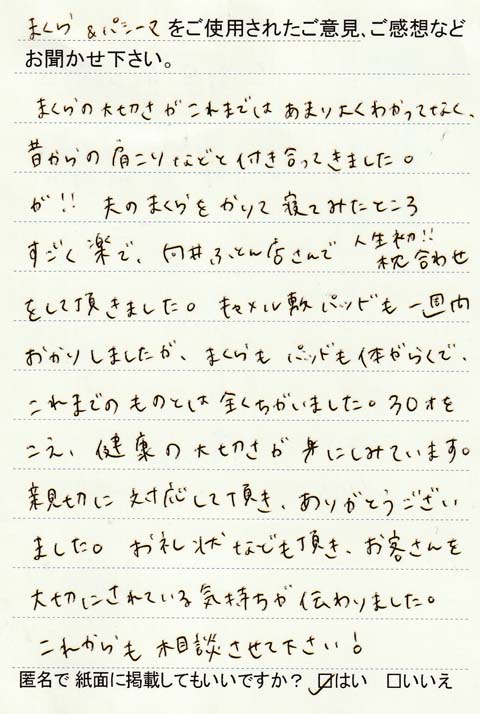 まくら&パシーマをご使用されたご意見、ご感想など
お聞かせ下さい。
まくらの大切さがこれまではあまりよくわかってなく、
昔からの肩こりなどと付き合ってきました。
が!! 夫のまくらをかりて寝てみたところ
すごく楽で、向井ふとん店さんで人生初!!枕合わせ
をして頂きました。キャメル敷パッドも一週間
おかりしましたが、まくらもパッドも体がらくで、
これまでのものとは全くちがいました。30才を
こえ、健康の大切さが身にしみています。
親切に対応して頂き、ありがとうござい
ました。お礼状なども頂き、お客さんを
大切にされている気持ちが伝わりました。
これからも相談させて下さい!
匿名で紙面に掲載してもいいですか? ☑はい □いいえ